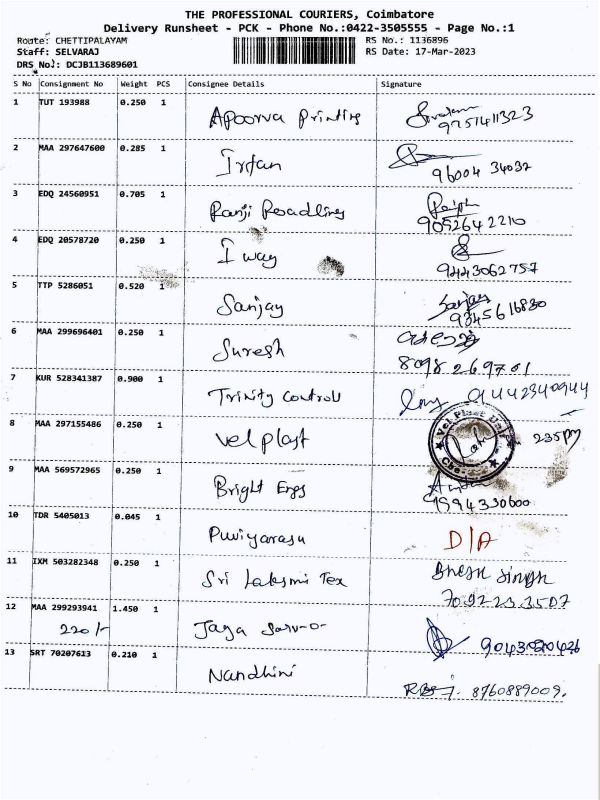 THE PROFESSIONAL COURIERS, Coimbatore
Delivery Runsheet - PCK - Phone No.:0422-3505555 - Page No.:1
Route: CHETTIPALAYAM RS No.: 1136896
Staff: SELVARAJ RS Date: 17-Mar-2023
DRS No.: DCJB113689601
S No Consignment No Weight PCS Consignee Details Signature
1 TUT 193988 0.250 1 Apoorva Printing
9751411323
2 MAA 297647600 0.285 1 Irfan
96004 34032
3 EDQ 24560951 0.705 1 Ranji Roadlines
9052642210
4 EDQ 20578720 0.250 1 I way
9443062757
5 TTP 5286051 0.520 1 Sanjay Sanjay
9345616830
6 MAA 299696401 0.250 1 Suresh
8098269701
7 KUR 528341387 0.900 1 Trinity Controls 9442340944
8 MAA 297155486 0.250 1 Vel plast Vel Plast 235pm
9 MAA 569572965 0.250 1 Bright Engs
9994330600
10 TDR 5405013 0.045 1 Puviyarasu D/A
11 IXM 503282348 0.250 1 Sri Laksmi Tex Singh
7092233507
12 MAA 299293941 1.450 1 Jaya
220/- 9043020426
13 SRT 70207613 0.210 1 Nandhini
8760889009.